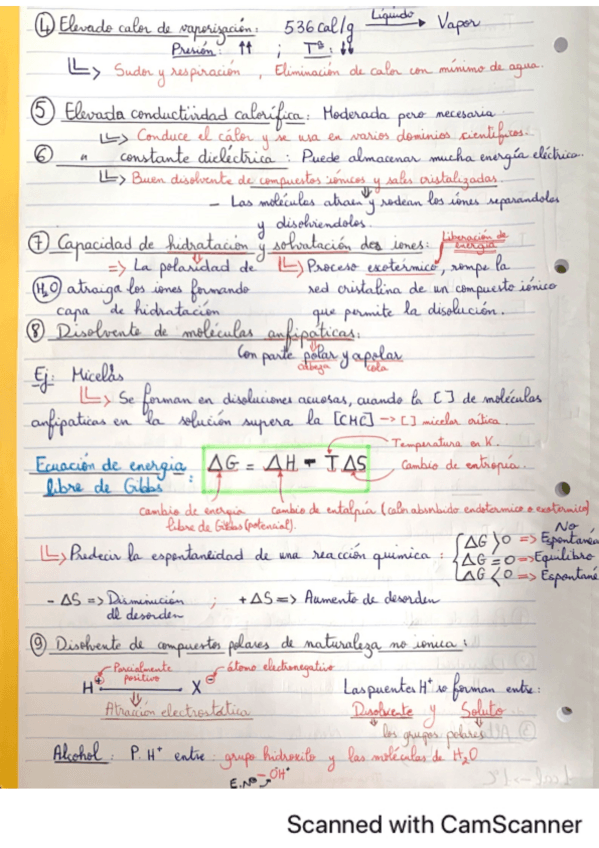 ④ Elevado calor de vaporización: 536 Cal/g Líquido → Vapor
Presión: ↑↑ ; Tª: ↓↓
↳ Sudor y respiración, Eliminación de calor con mínimo de agua.
⑤ Elevada conductividad calorífica: Moderada pero necesaria
↳ Conduce el calor y se usa en varios dominios científicos.
⑥ " constante dieléctrica: Puede almacenar mucha energía eléctrica.
↳ Buen disolvente de compuestos iónicos y sales cristalizadas.
- Las moléculas atraen y rodean los iones separandolos
y disolviendolos.
⑦ Capacidad de hidratación y solvatación de iones: Liberación de energía
=> La polaridad de ↳ Proceso exotérmico, rompe la
(H₂O) atraiga los iones formando red cristalina de un compuesto iónico
capa de hidratación que permite la disolución.
⑧ Disolvente de moléculas anfipáticas:
Con parte polar y apolar
cabeza cola
Ej: Micelas
↳ Se forman en disoluciones acuosas, cuando la [ ] de moléculas
anfipaticas en la solución supera la [CMC] → [ ] micelar crítica.
Temperatura en K.
Ecuación de energía libre de Gibbs: ΔG = ΔH - TΔS Cambio de entropía.
cambio de energía libre de Gibbs (potencial). cambio de entalpía (calor absorbido endotermico o exotermico)
↳ Predecir la espontaneidad de una reacción química: { ΔG > 0 => No Espontánea
ΔG = 0 => Equilibro
ΔG < 0 => Espontané
- ΔS => Disminución de desorden ; + ΔS => Aumento de desorden
⑨ Disolvente de compuestos polares de naturaleza no iónica:
Parcialmente positivo átomo electronegativo
H⁺ — X⁻ Las puentes H⁺ se forman entre:
Atracción electrostática Disolvente y Soluto
los grupos polares
Alcohol: P. H⁺ entre grupo hidroxilo y las moléculas de H₂O
Scanned with CamScanner